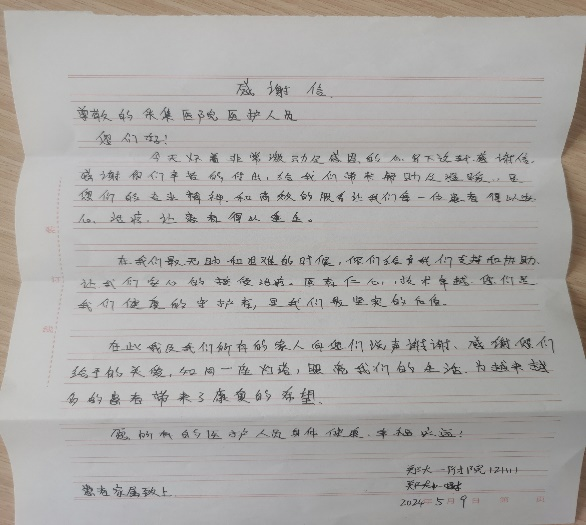 感谢信
尊敬的朱集医院医护人员
您们好!
今天怀着非常激动及感恩的心写下这封感谢信,
感谢你们辛苦的付出,给我们带来帮助及温暖,是
您们的专业精神和高效的服务让我们每一位患者得以安
心治病,让患者得以重生。
在我们最无助和困难的时候,你们给予我们支持和协助,
让我们安心的接受治病。医者仁心,技术卓越,您们是
我们健康的守护者,是我们最坚实的后盾。
在此我及我们所有的家人向您们说声谢谢、感谢您们
给予的关爱,如同一座灯塔,照亮我们的生活,为越来越
多的患者带来了康复的希望。
愿所有的医护人员身体健康,幸福永远!
郑大一附院
患者家属致上
2024年5月9